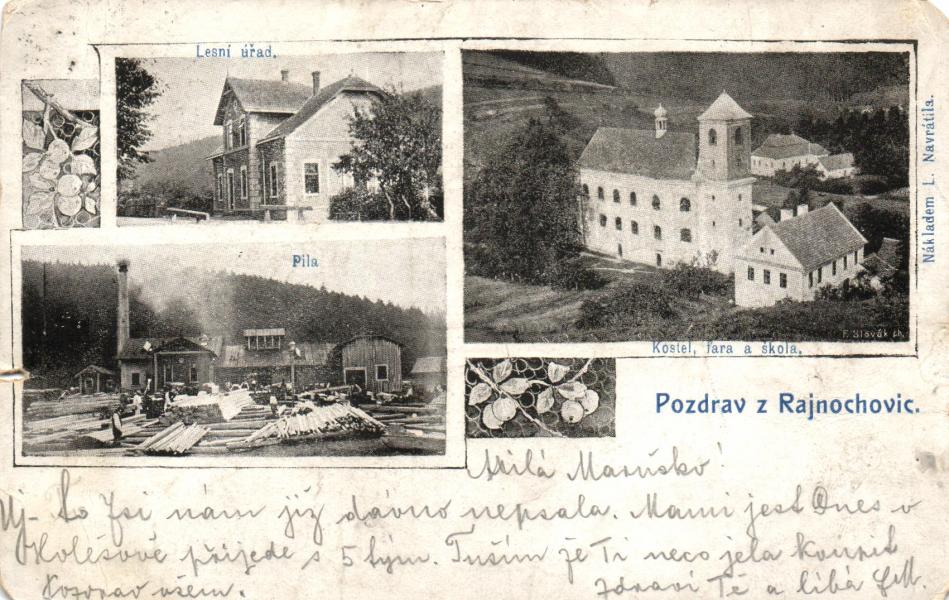 Lesní úřad.
Pila
Kostel, fara a škola.
F. Slovák ph.
Nákladem L. Navrátila.
Pozdrav z Rajnochovic.
Milá Maruško!
to Jsi nám již dávno nepsala. Mami jest Dnes v
Holešově přijede s 5 tým. Tuším že Ti neco jela koupit
Pozdrav všem. zdraví Tě a líbá